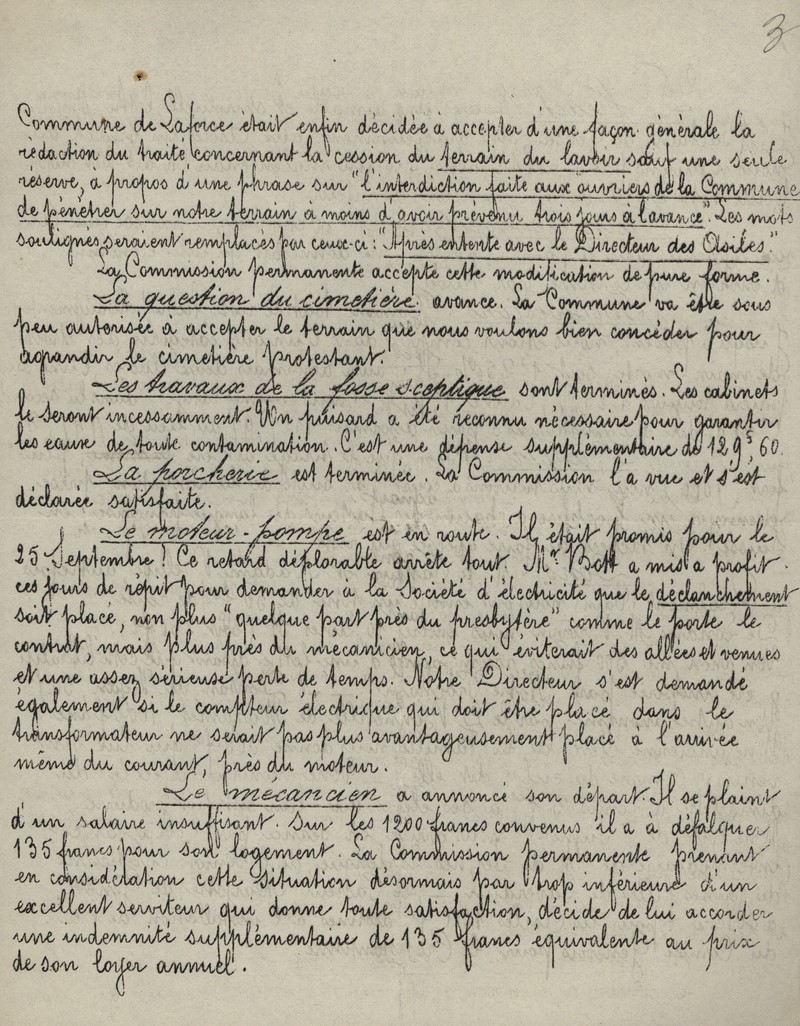 3
Commune de Laforce était enfin décidée à accepter d'une façon générale la
rédaction du traité concernant la cession du terrain du lavoir sauf une seule
réserve, à propos d'une phrase sur "l'interdiction faite aux ouvriers de la Commune
de pénétrer sur notre terrain à moins d'avoir prévenu trois jours à l'avance". Les mots
soulignés seraient remplacés par ceux-ci : "Après entente avec le Directeur des Asiles."
La Commission permanente accepte cette modification de pure forme.
La question du cimetière avance. La Commune va être sous
peu autorisée à accepter le terrain que nous voulons bien concéder pour
agrandir le cimetière protestant.
Les travaux de la fosse sceptique sont terminés. Les cabinets
le seront incessamment. Un puisard a été reconnu nécessaire pour garantir
les eaux de toute contamination. C'est une dépense supplémentaire de 129f,60.
La porcherie est terminée. La Commission l'a vue et s'est
déclarée satisfaite.
Le moteur-pompe est en route. Il était promis pour le
25 Septembre ! Ce retard déplorable arrête tout. Mr. Bott a mis a profit
ces jours de répit pour demander à la Société d'électricité que le déclanchement
soit placé, non plus "quelque part près du presbytère" comme le porte le
contrat, mais plus près du mécanicien, ce qui éviterait des allées et venues
et une assez sérieuse perte de temps. Notre Directeur s'est demandé
également si le compteur électrique qui doit être placé dans le
transformateur ne serait pas plus avantageusement placé à l'arrivée
même du courant, près du moteur.
Le mécancien a annoncé son départ. Il se plaint
d'un salaire insuffisant. Sur les 1200 francs convenus il a à défalquer
135 francs pour son logement. La Commission permanente prenant
en considération cette situation désormais par trop inférieure d'un
excellent serviteur qui donne toute satisfaction, décide de lui accorder
une indemnité supplémentaire de 135 francs équivalente au prix
de son loyer annuel.